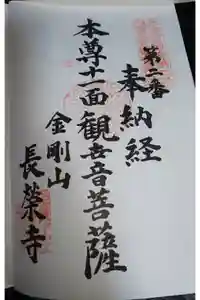 第二番
奉納経
本尊十一面観世音菩薩
金剛山
長榮寺